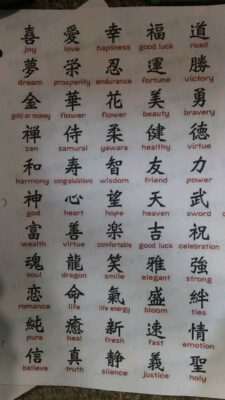 喜 愛 幸 福 道
joy love hapiness good luck road
夢 栄 忍 運 勝
dream prosperity endurance fortune victory
金 華 花 美 勇
gold or money flower flower beauty bravery
禅 侍 柔 健 徳
zen samurai yawara healthy virtue
和 寿 智 友 力
harmony congratulations wisdom friend power
神 心 望 天 武
god heart hope heaven sword
富 善 楽 吉 祝
wealth virtue comfortable good luck celebration
魂 龍 笑 雅 強
soul dragon smile elegant strong
恋 命 氣 盛 絆
romance life life energy bloom ties
純 癒 新 速 情
pure heal fresh fast emotion
信 真 静 義 聖
believe truth silence justice holy